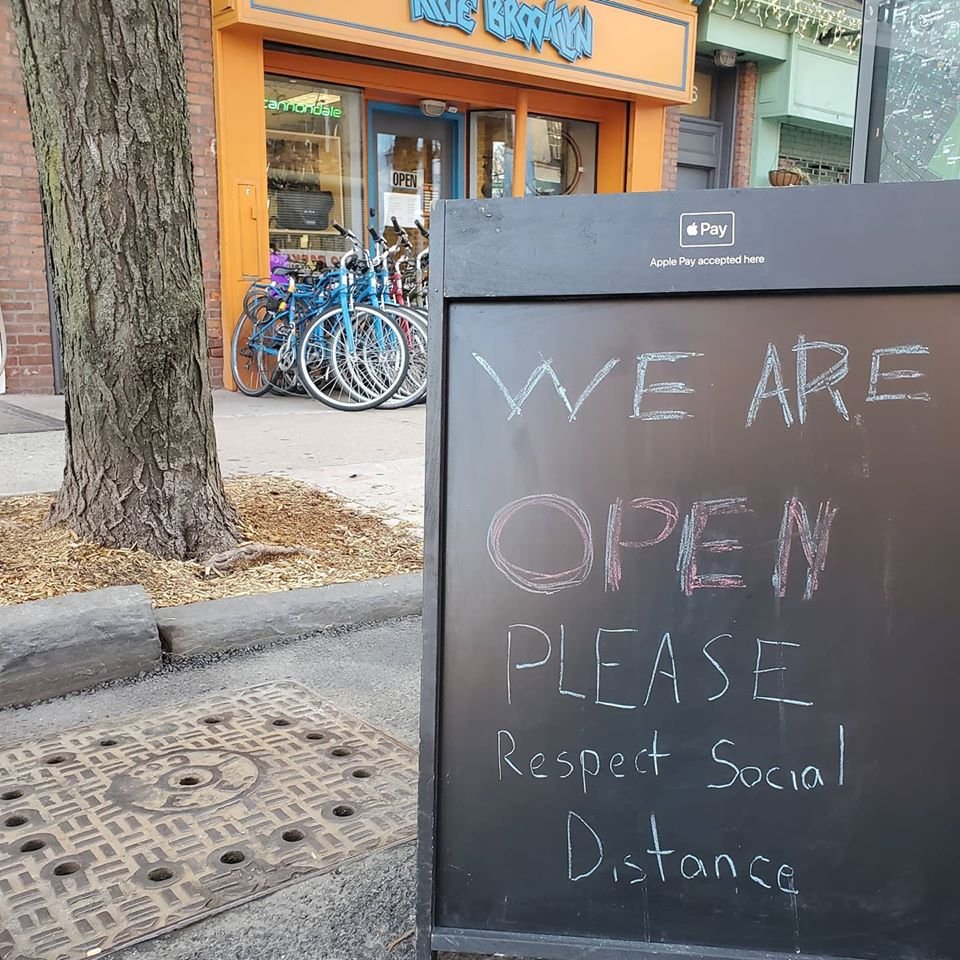 RIDE BROOKLYN
cannondale
6
OPEN
Pay
Apple Pay accepted here
WE ARE
OPEN
PLEASE
Respect Social
Distance